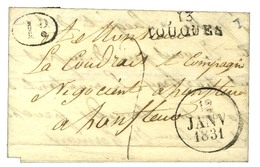 13
TOUQUES
A Monsieur
La Coudrais & Compagnie
Negociant a honfleur
a honfleur
12
JANV
1831